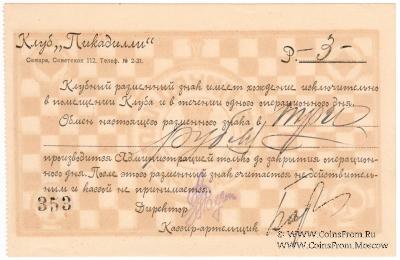 Клуб „Пикадилли“
Самара, Советская 112. Телеф. № 2-31.
Р. — 3 —
Клубный разменный знак имеет хождение исключительно
в помещении Клуба и в течении одного операционного дня.
Обмен настоящего разменного знака в три
рубля
производится Администрацией только до закрытия операцион-
ного дня. После этого разменный знак считается недействитель-
ным и кассой не принимается.
353
Директор
Кассир-артельщик
www.CoinsFrom.Ru
www.CoinsFrom.Ru